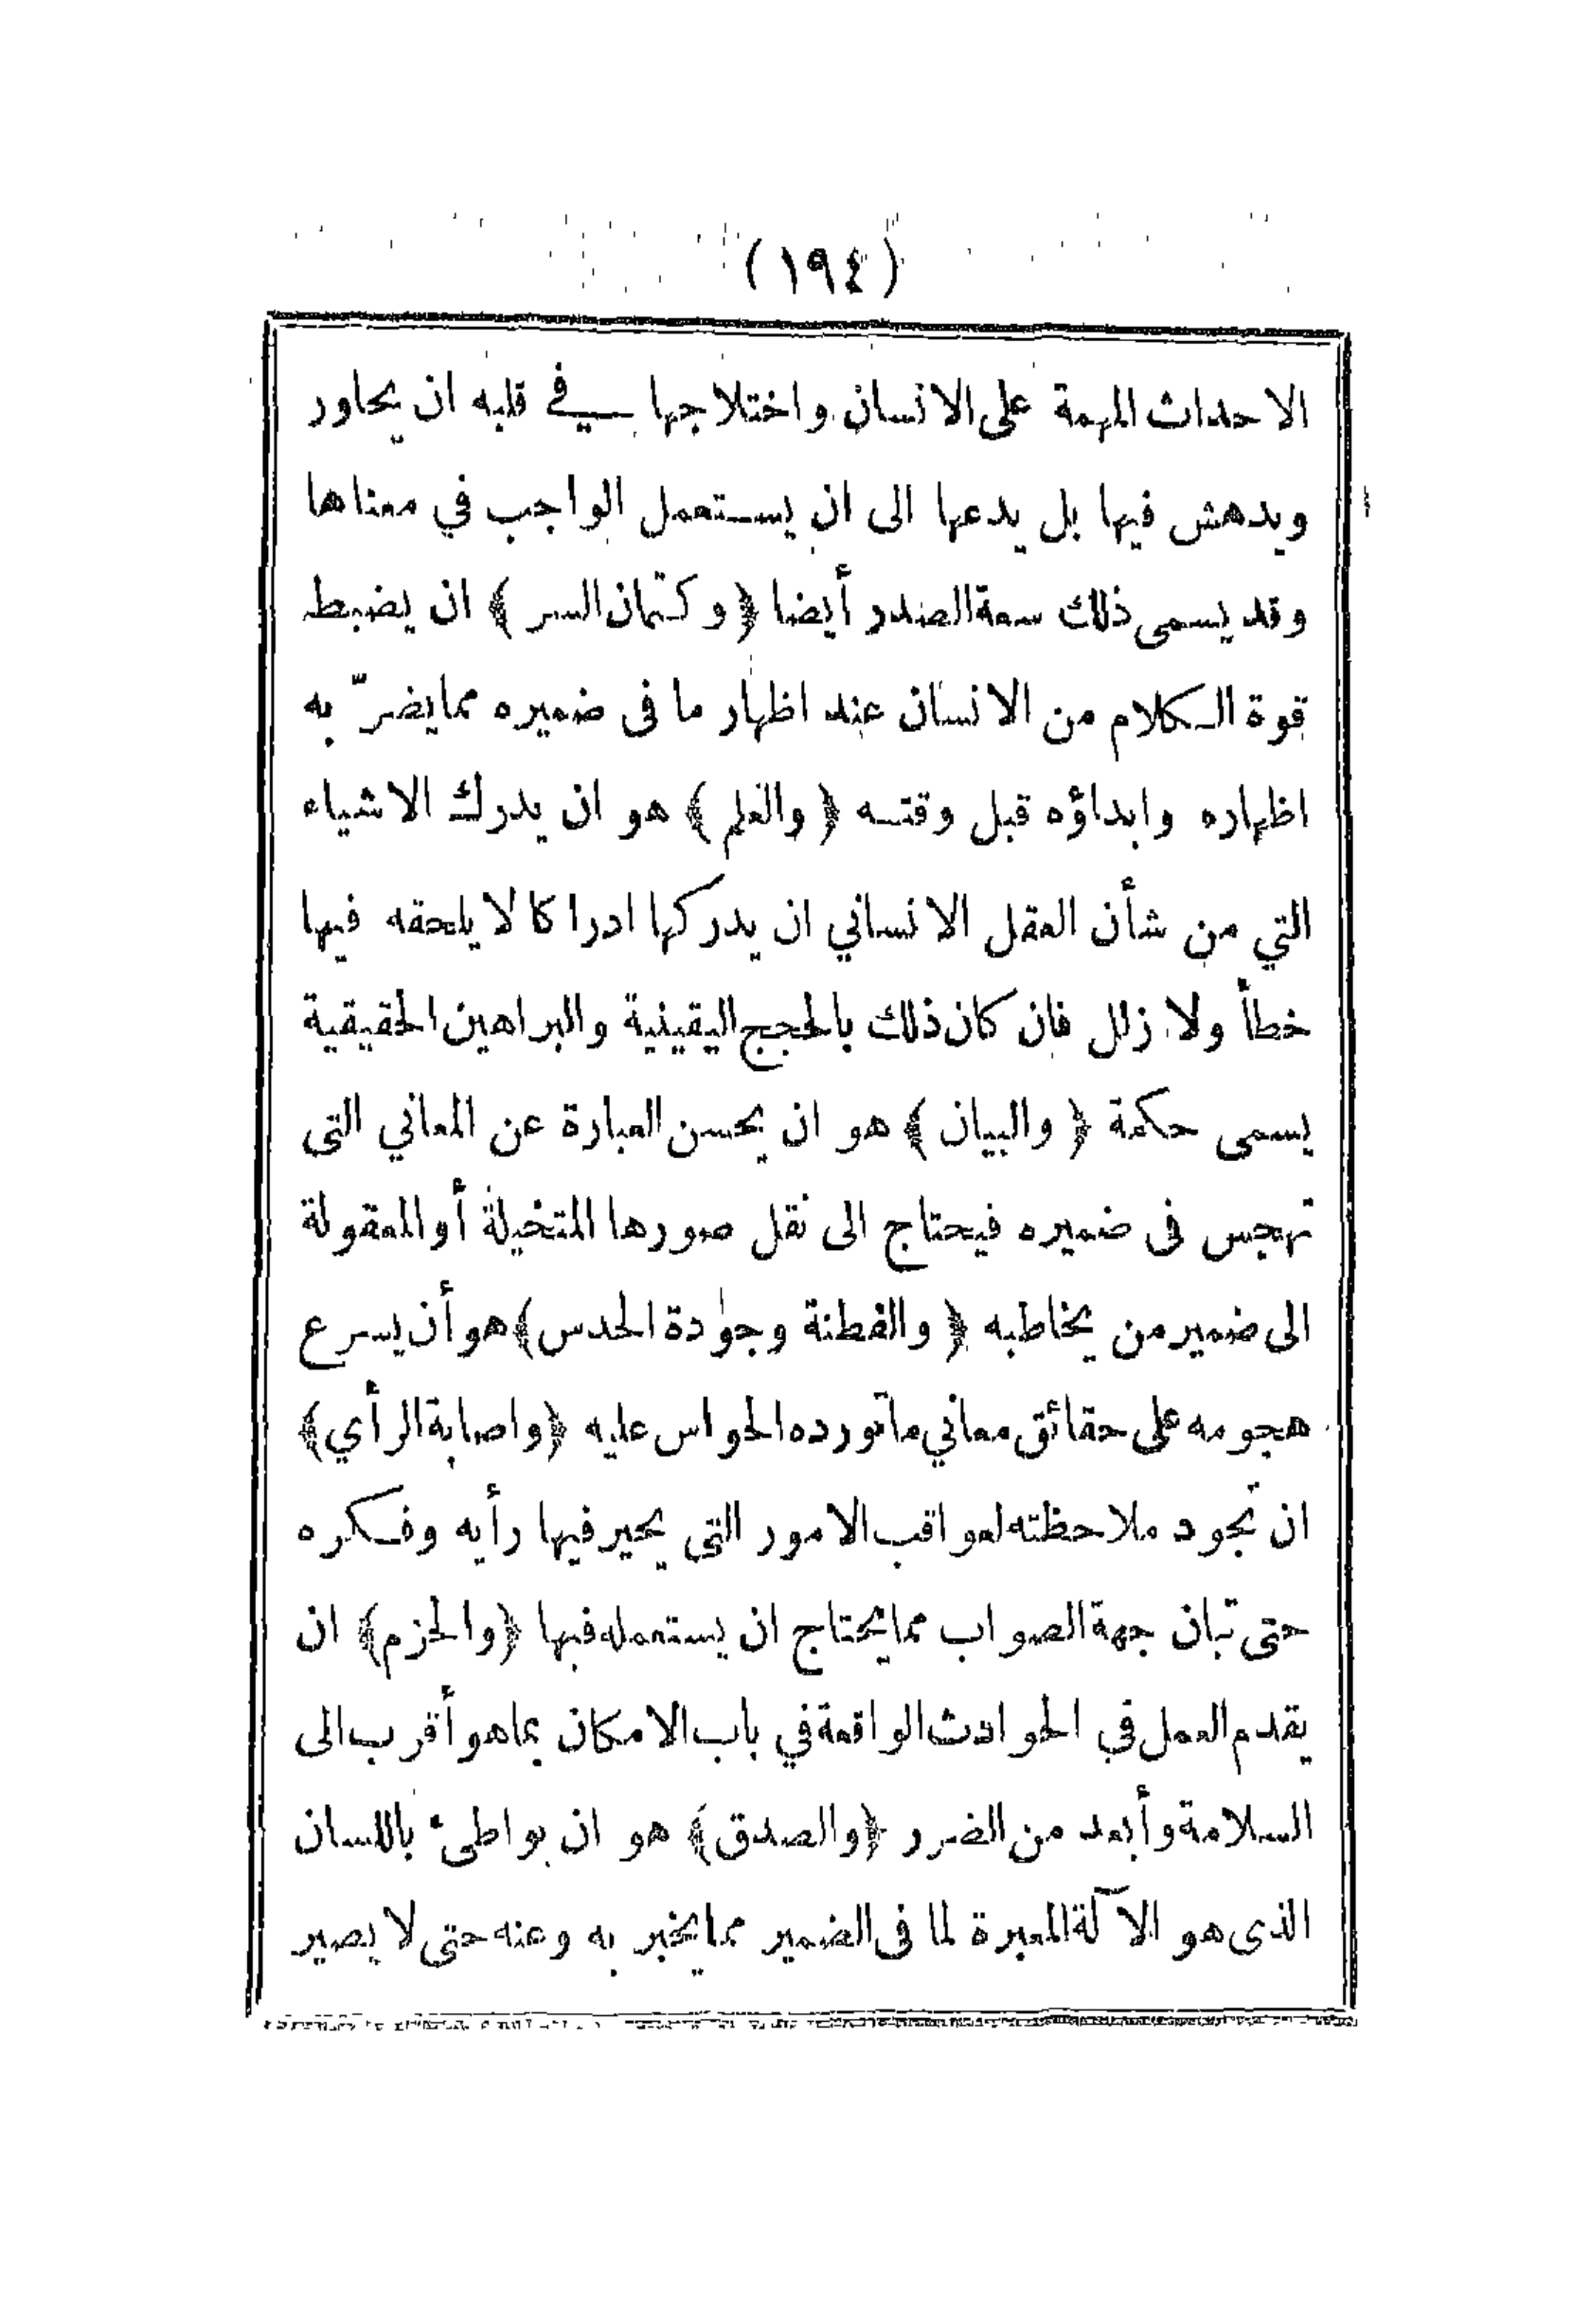 (١٩٤)
الاحداث المهمة على الانسان واختلاجها في قلبه ان يحاور
ويدهش فيها بل يدعها الى ان يستعمل الواجب في معناها
وقد يسمى ذلك سعة الصدر أيضا ﴿وكتمان السر﴾ ان يضبط
قوة الكلام من الانسان عند اظهار ما فى ضميره مما يضرّ به
اظهاره وابداؤه قبل وقته ﴿والعلم﴾ هو ان يدرك الاشياء
التي من شأن العقل الانساني ان يدركها ادراكا لا يلحقه فيها
خطأ ولا زلل فان كان ذلك بالحجج اليقينية والبراهين الحقيقية
يسمى حكمة ﴿والبيان﴾ هو ان يحسن العبارة عن المعاني التى
تهجس فى ضميره فيحتاج الى نقل صورها المتخيلة أو المعقولة
الى ضمير من يخاطبه ﴿والفطنة وجوادة الحدس﴾ هو أن يسرع
هجومه على حقائق معاني ما تورده الحواس عليه ﴿واصابة الرأي﴾
ان تجود ملاحظته لعواقب الامور التى يحير فيها رأيه وفكره
حتى تبان جهة الصواب مما يحتاج ان يستعمله فيها ﴿والحزم﴾ ان
يقدم العمل في الحوادث الواقعة في باب الامكان بما هو أقرب الى
السلامة وأبعد من الضرر ﴿والصدق﴾ هو ان يواطئ باللسان
الذى هو الآلة المعبرة لما فى الضمير مما يخبر به وعنه حتى لا يصير